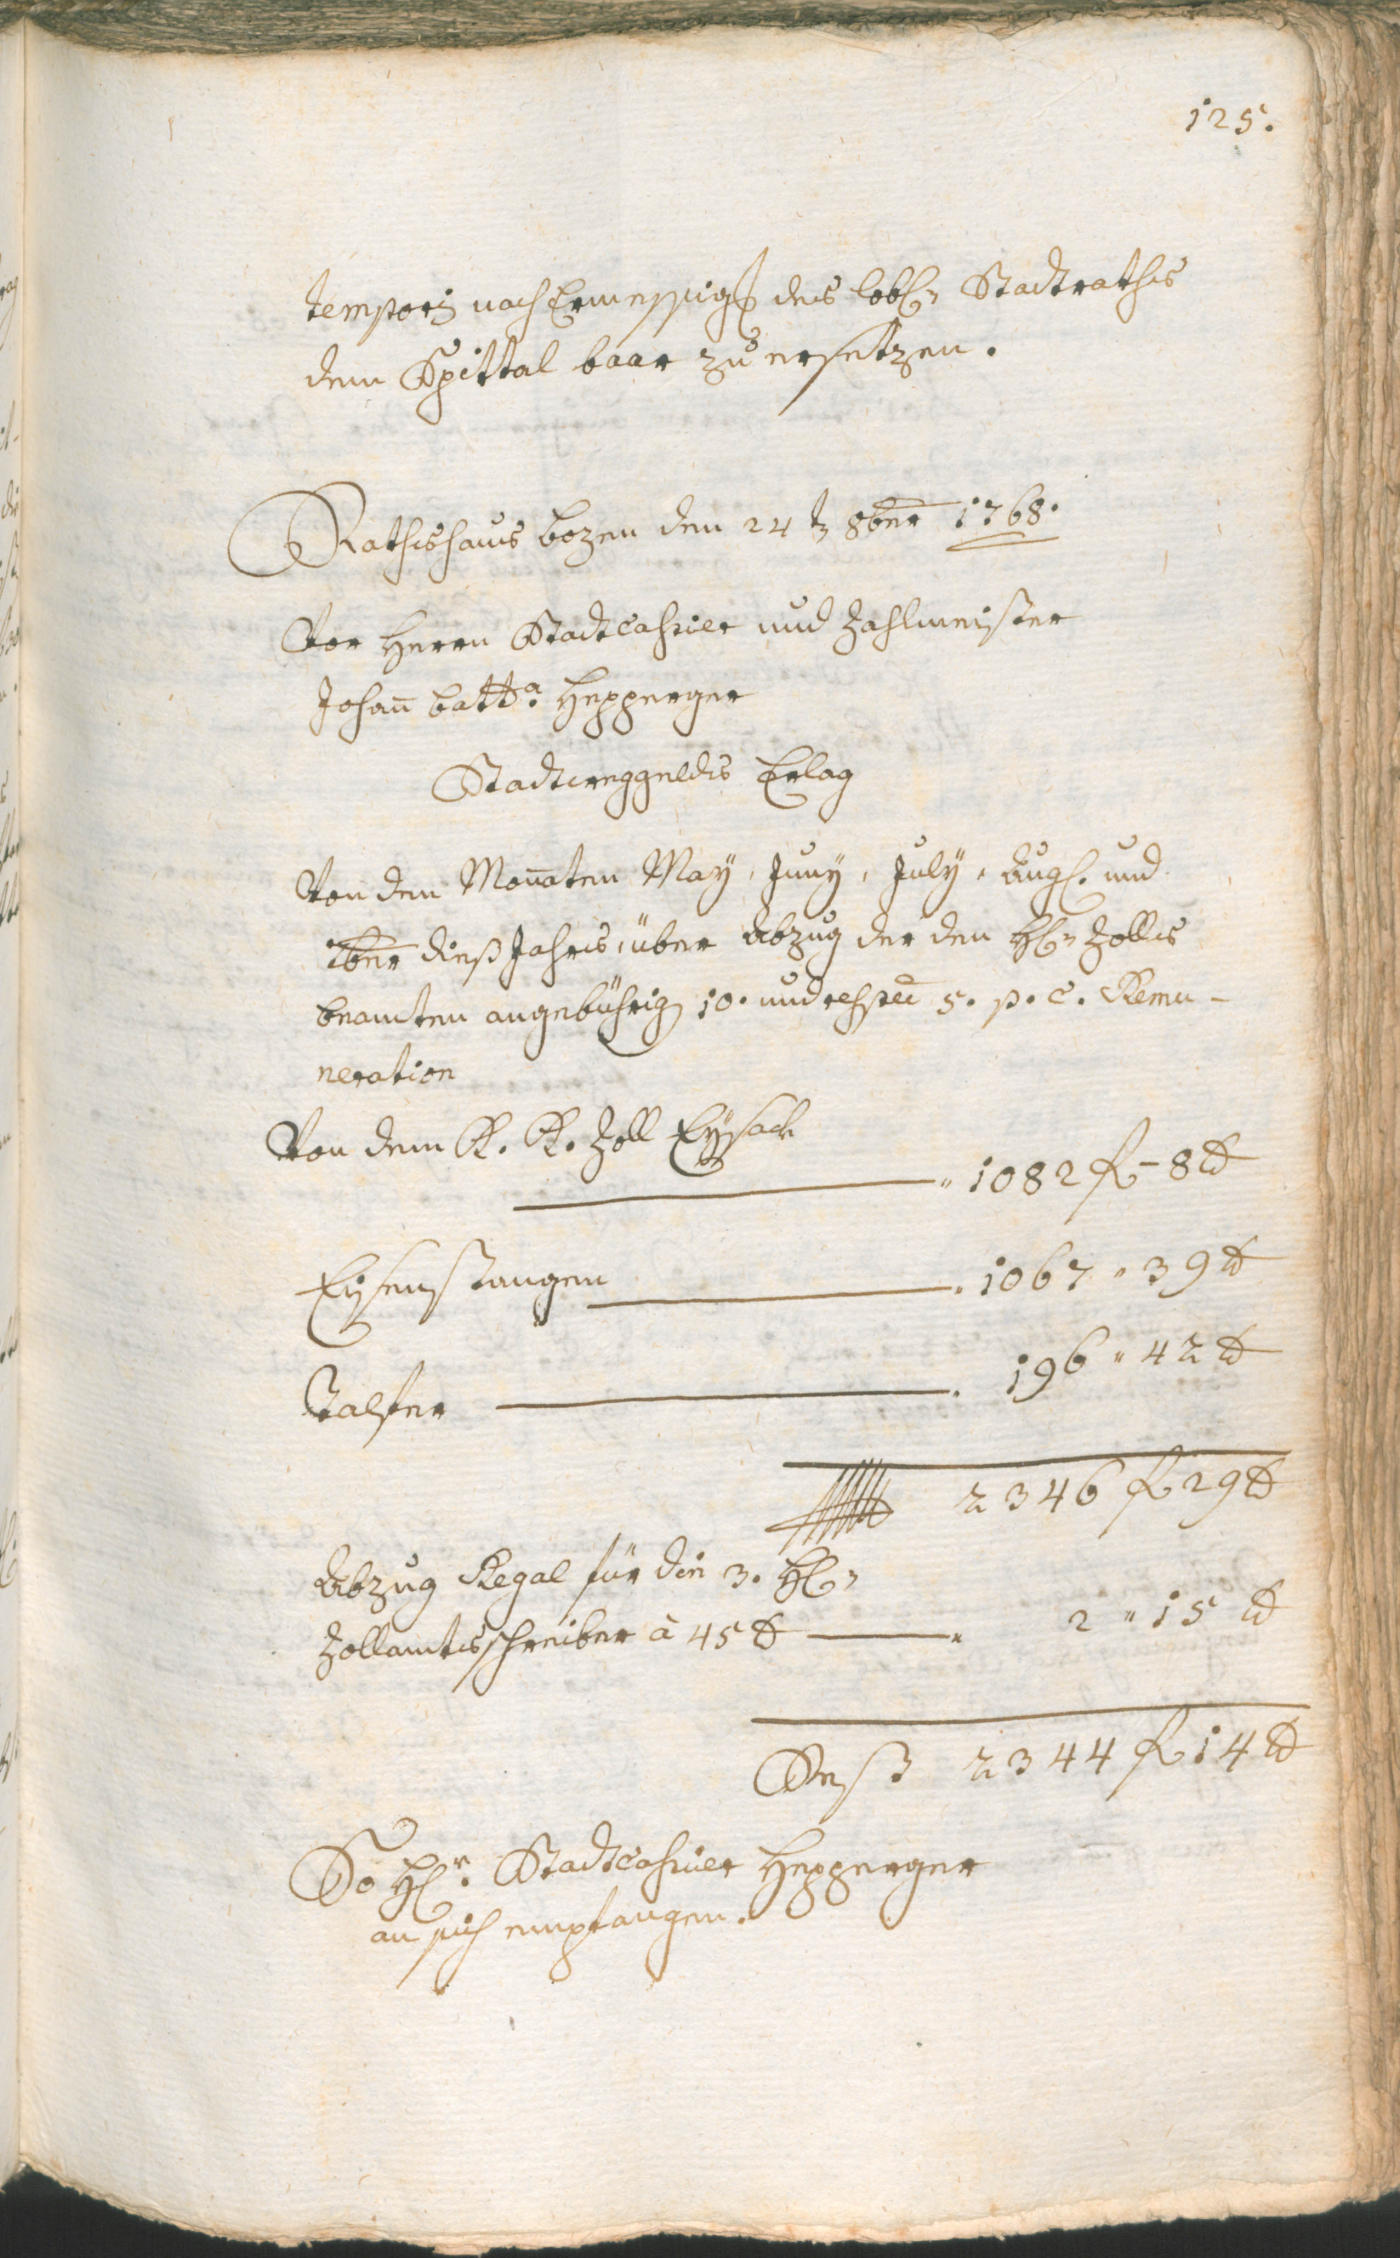 125.
temporis nach Ermessigung des lobl. Stadtraths
dem Spittal baar zu ersetzen.
Rathshaus Bozen den 24 t. 8ber 1768.
Vor Herrn Stadtcassier und Zahlmeister
Johañ Batta. Hepperger
Stadtweggelds Erlag
Von den Monaten May, Juny, July, Aug. und
7ber dieß Jahrs, über Abzug der den H. Zolls
beamten angebührig 10. und respec 5. p. c. Remu-
neration
Von dem K. K. Zoll Eysack
1082 fl - 8 x
Eysenstangen 1067 " 39 x
Talfer 196 " 42 x
2346 fl 29 x
Abzug Regal für die 3. H.
Zollamtsschreiber à 45 x 2 " 15 x
Rest 2344 fl 14 x
So Hr. Stadtcassier Hepperger
an sich empfangen.